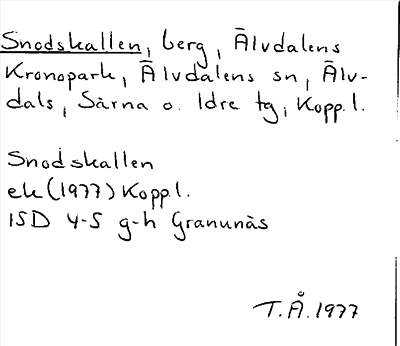 Snodskallen, berg, Älvdalens
Kronopark, Älvdalens sn, Älv-
dals, Särna o. Idre tg, Kopp.l.
Snodskallen
ek (1977) Kopp l.
15D 4-5 g-h Granunäs
T.Å. 1977